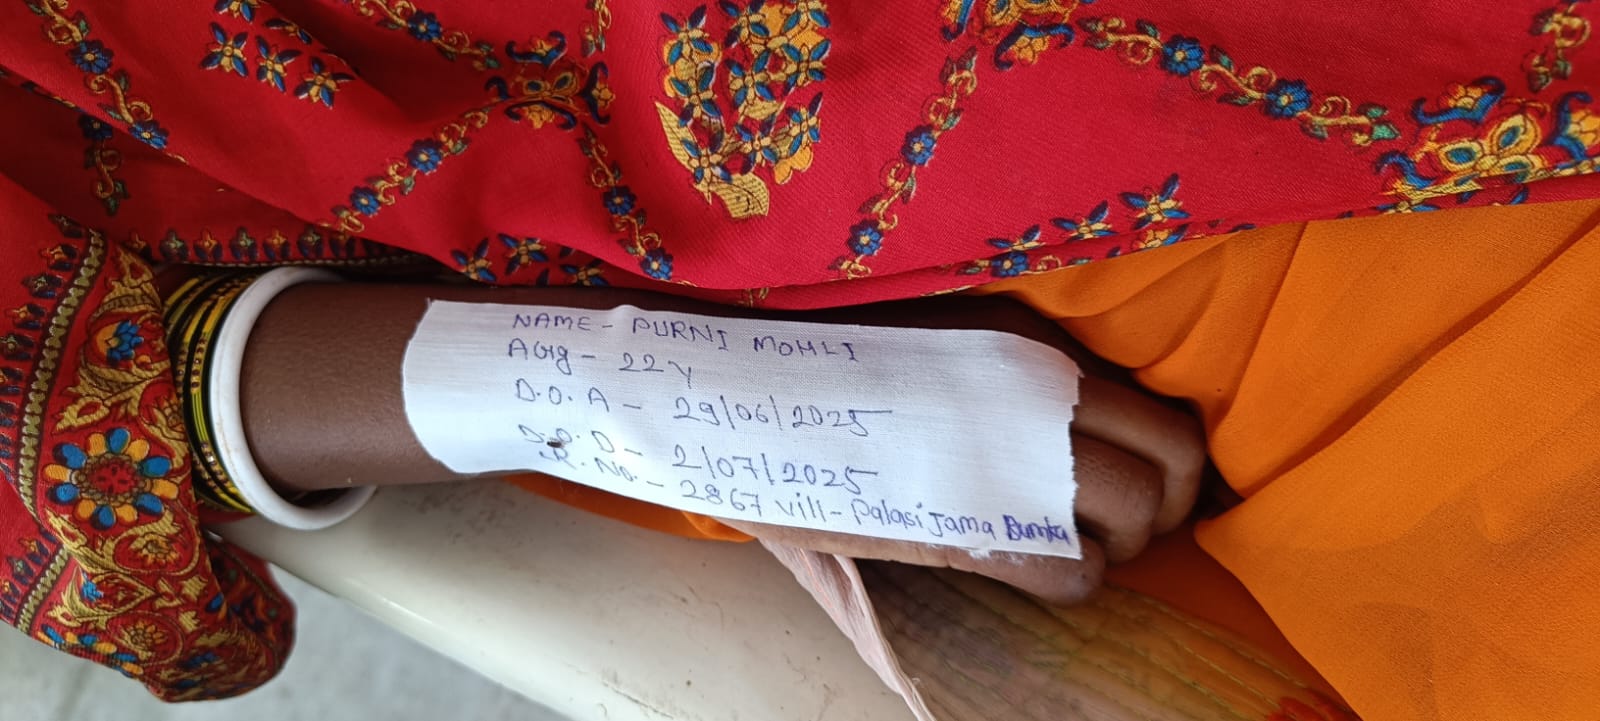 NAME - PURNI MOHLI
Age - 22y
D.O.A - 29/06/2025
D.O.D - 2/07/2025
R. No. - 2867 vill - Palasi Jama Dumka